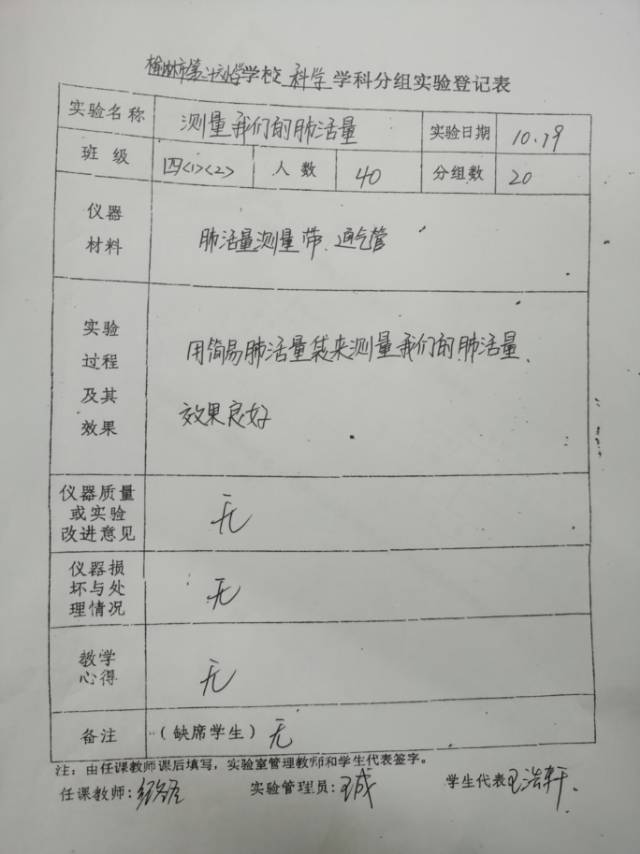 榆林市第十六小学学校 科学 学科分组实验登记表
实验名称 测量我们的肺活量 实验日期 10.19
班级 四<1><2> 人数 40 分组数 20
仪器
材料
肺活量测量带、通气管
实验
过程
及其
效果
用简易肺活量袋来测量我们的肺活量.
效果良好
仪器质量
或实验
改进意见
无
仪器损
坏与处
理情况
无
教学
心得
无
备注 (缺席学生) 无
注：由任课教师课后填写，实验室管理教师和学生代表签字。
任课教师: 实验管理员: 王成 学生代表 王浩轩.